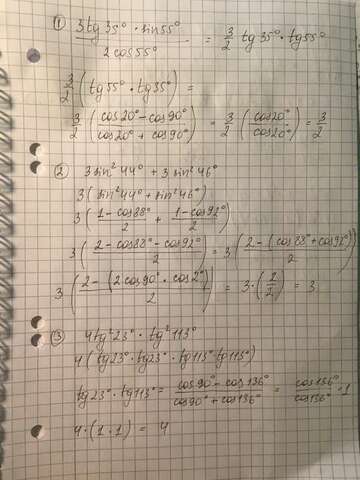 ① 3tg35° · sin55° / 2cos55° = 3/2 tg35° · tg55°
3/2 (tg55° · tg35°) =
3/2 (cos20° - cos90° / cos20° + cos90°) = 3/2 (cos20° / cos20°) = 3/2
② 3sin²44° + 3sin²46°
3(sin²44° + sin²46°)
3(1 - cos88° / 2 + 1 - cos92° / 2)
3(2 - cos88° - cos92° / 2) = 3(2 - (cos88° + cos92°) / 2)
3(2 - (2cos90° · cos2°) / 2) = 3 · (2/2) = 3
③ 4tg²23° · tg²113°
4(tg23° · tg23° · tg113° · tg113°)
tg23° · tg113° = cos90° - cos136° / cos90° + cos136° = cos136° / cos136° · 1
4 · (1 · 1) = 4